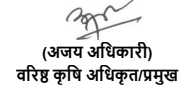 (अजय अधिकारी)
वरिष्ठ कृषि अधिकृत/प्रमुख